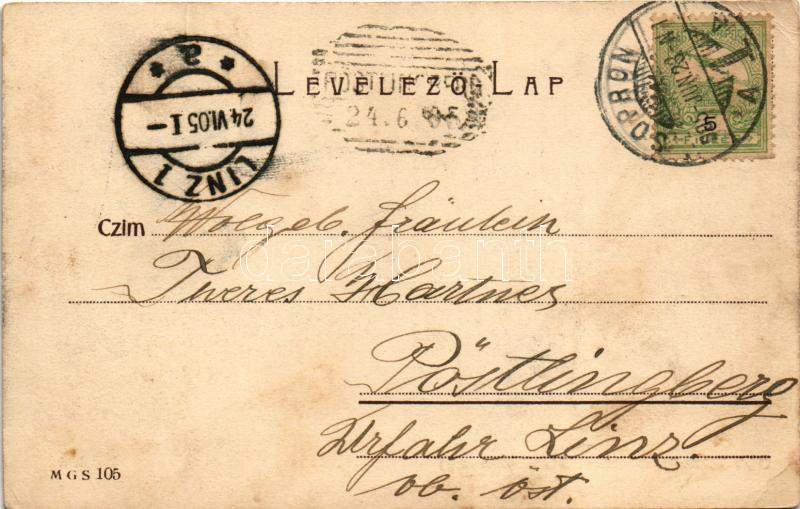 LEVELEZŐ LAP
LINZ 1
24.VI.05 I-
* a *
24.6 05
SOPRON
5
Czim Wolgeb. Fräulein
darabanth
Hartner
Pöstlingberg
Urfahr Linz.
ob. öst.
M G S 105